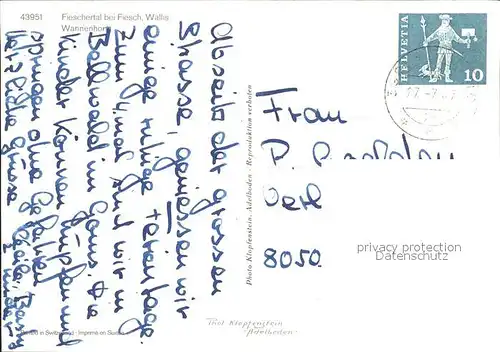 43951 Fieschertal bei Fiesch, Wallis
Wannenhorn
HELVETIA
10
Abseits der grossen
Strasse, geniessen wir
einige ruhige Ferientage.
Zum 4. mal sind wir in
Bellwald im Goms. Die
Kinder können hüpfen und
springen ohne Gefahren
Herzliche Grüsse
Photo Klopfenstein, Adelboden - Reproduktion verboten
Frau
8050
privacy protection
Datenschutz
Phot Klopfenstein
Adelboden
Printed in Switzerland - Imprimé en Suisse